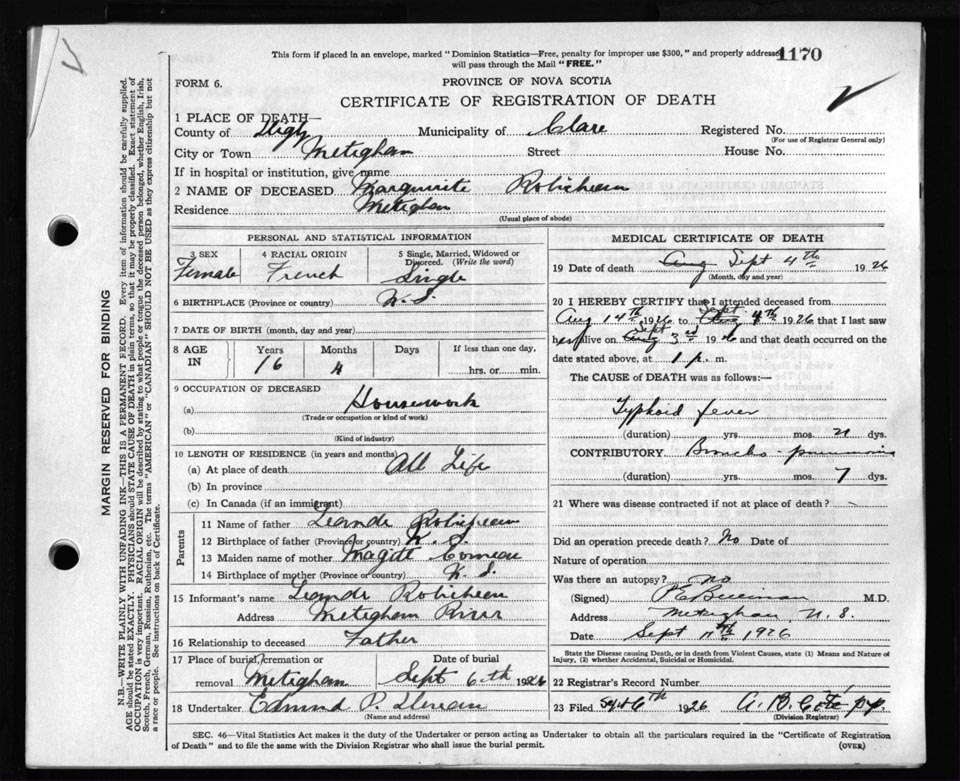 This form if placed in an envelope, marked "Dominion Statistics—Free, penalty for improper use $300," and properly addressed
will pass through the Mail "FREE."
1170
FORM 6.
PROVINCE OF NOVA SCOTIA
CERTIFICATE OF REGISTRATION OF DEATH
1 PLACE OF DEATH—
County of Digby Municipality of Clare Registered No.
(For use of Registrar General only)
City or Town Meteghan Street House No.
If in hospital or institution, give name
2 NAME OF DECEASED Marguirite Robicheau
Residence Meteghan
(Usual place of abode)
PERSONAL AND STATISTICAL INFORMATION
3 SEX 4 RACIAL ORIGIN 5 Single, Married, Widowed or
Divorced. (Write the word)
Female French Single
6 BIRTHPLACE (Province or country) N. S.
7 DATE OF BIRTH (month, day and year)
8 AGE IN Years Months Days If less than one day,
16 4 hrs. or min.
9 OCCUPATION OF DECEASED
(a) Housework
(Trade or occupation or kind of work)
(b)
(Kind of industry)
10 LENGTH OF RESIDENCE (in years and months)
(a) At place of death All Life
(b) In province
(c) In Canada (if an immigrant)
Parents
11 Name of father Leande Robicheau
12 Birthplace of father (Province or country) N. S.
13 Maiden name of mother Magitt Comeau
14 Birthplace of mother (Province or country) N. S.
15 Informant's name Leande Robicheau
Address Meteghan River
16 Relationship to deceased Father
17 Place of burial, cremation or Date of burial
removal Meteghan Sept 6th 1926
18 Undertaker Edmund P.
(Name and address)
MEDICAL CERTIFICATE OF DEATH
19 Date of death Aug Sept 4th 1926
(Month, day and year)
20 I HEREBY CERTIFY that I attended deceased from
Aug 14th 1926 to Sept 4th 1926 that I last saw
her alive on Sept 3rd 1926 and that death occurred on the
date stated above, at 1 p. m.
The CAUSE of DEATH was as follows:—
Typhoid fever
(duration) yrs. mos. 21 dys.
CONTRIBUTORY Broncho-pneumonia
(duration) yrs. mos. 7 dys.
21 Where was disease contracted if not at place of death?
Did an operation precede death? No Date of
Nature of operation
Was there an autopsy? No
(Signed) M.D.
Address Meteghan, N. S.
Date Sept 1926
State the Disease causing Death, or in death from Violent Causes, state (1) Means and Nature of
Injury, (2) whether Accidental, Suicidal or Homicidal.
22 Registrar's Record Number
23 Filed Sept 6th 1926 A. B. Côté pp.
(Division Registrar)
SEC. 46—Vital Statistics Act makes it the duty of the Undertaker or person acting as Undertaker to obtain all the particulars required in the "Certificate of Registration
of Death" and to file the same with the Division Registrar who shall issue the burial permit.
(OVER)
MARGIN RESERVED FOR BINDING
N.B.—WRITE PLAINLY WITH UNFADING INK—THIS IS A PERMANENT RECORD. Every item of information should be carefully supplied.
AGE should be stated EXACTLY. PHYSICIANS should STATE CAUSE OF DEATH in plain terms, so that it may be properly classified. Exact statement of
OCCUPATION is very important. RACIAL ORIGIN will be described by stating to what people or tongue the deceased person belonged, whether English, Irish,
Scotch, French, German, Russian, Ruthenian, etc. The terms "AMERICAN" or "CANADIAN" SHOULD NOT BE USED as they express citizenship but not
a race or people. See instructions on back of Certificate.